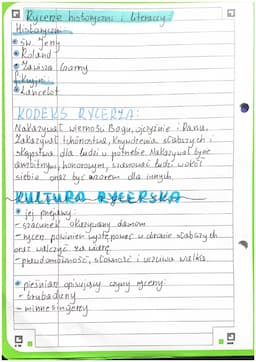 Rycerze historyczni i literaccy
Historyczni
św. Jerzy
Roland
Zawisza Czarny
Fikcyjni
Lancelot
KODEKS RYCERZA:
Nakazywał wierność Bogu, ojczyźnie i Panu.
Zakazywał tchórzostwa, krzywdzenia słabszych i
skąpstwa dla ludzi w potrzebie Nakazywał być
ambitnym, honorowym, szanować ludzi wokół
siebie oraz być wzorem dla innych.
KULTURA RYCERSKA
jej przejawy:
- szacunek okazywany damom
- rycerz powinien występować w obronie słabszych
oraz walczyć za wiarę
- prawdomówność, słowność i uczciwa walka
pieśniarze opisujący czyny rycerzy:
- trubadurzy
- minnesingerzy